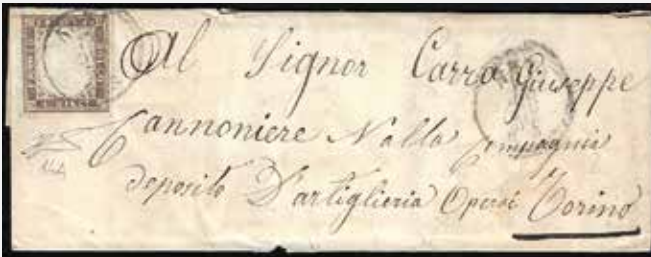 Al Signor Carra Giuseppe
Cannoniere Nalla Compagnia
deposito D'artiglieria Operai Torino